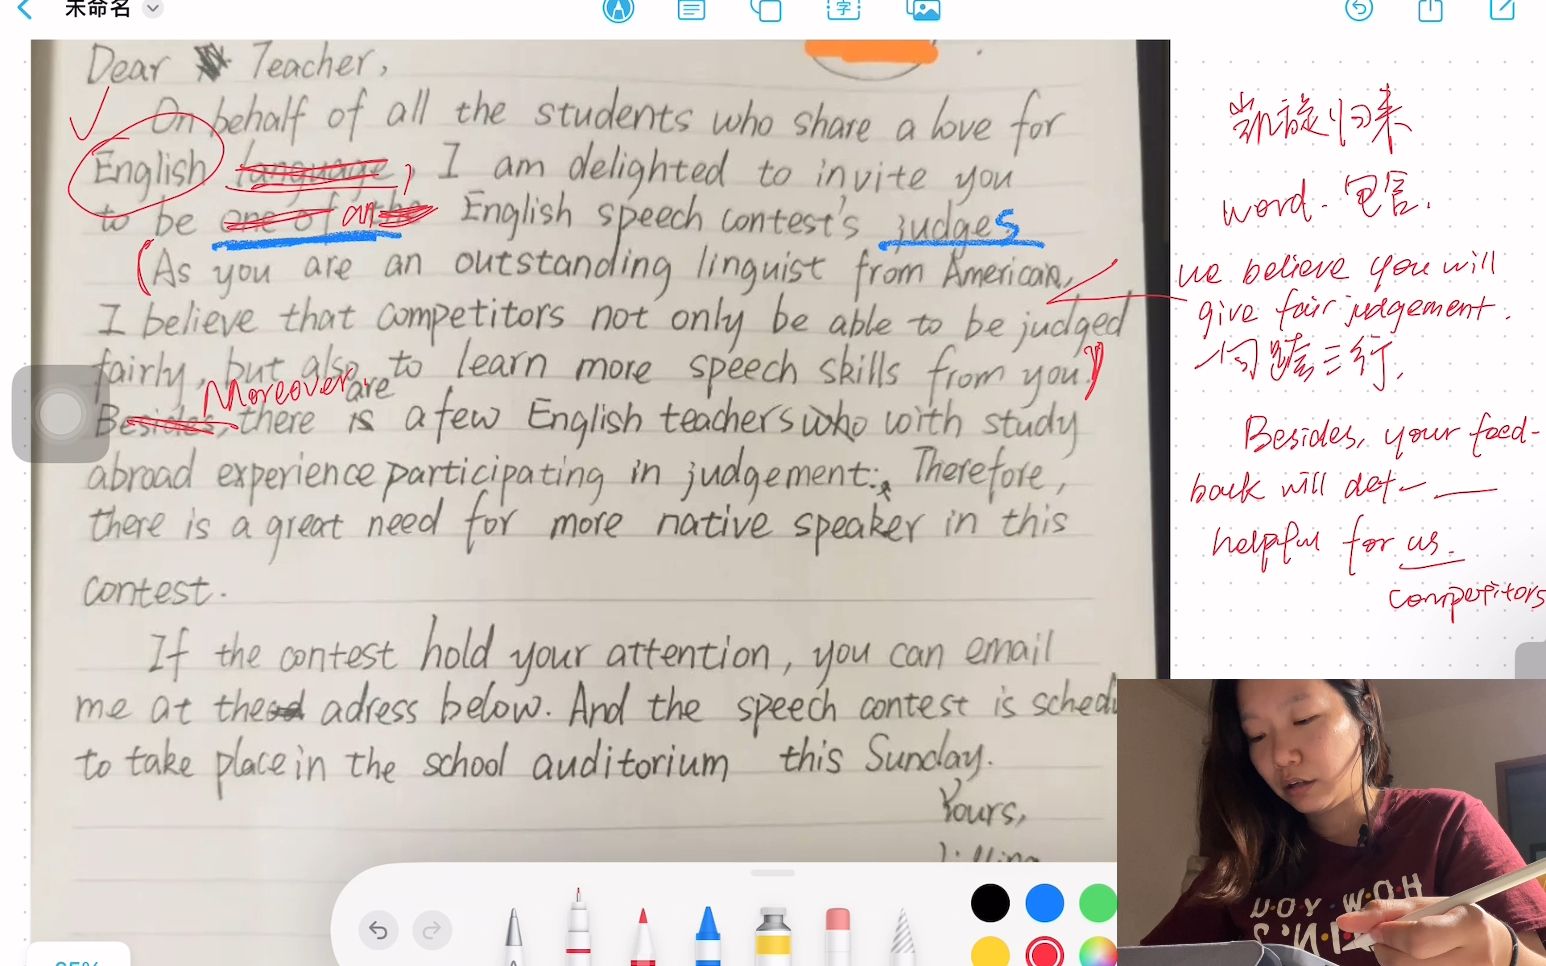 未命名
字
Dear Teacher,
On behalf of all the students who share a love for
English language, I am delighted to invite you
to be one of the an English speech contest's judges
(As you are an outstanding linguist from American,
I believe that competitors not only be able to be judged
fairly, but also to learn more speech skills from you.)
Moreover, are
Besides, there is a few English teachers who with study
abroad experience participating in judgement. Therefore,
there is a great need for more native speaker in this
contest.
If the contest hold your attention, you can email
me at the adress below. And the speech contest is schedu
to take place in the school auditorium this Sunday.
Yours,
凯旋归来
word.
we believe you will
give fair judgement.
一句跨三行.
Besides, your feed-
back will det
helpful for us.
competitors